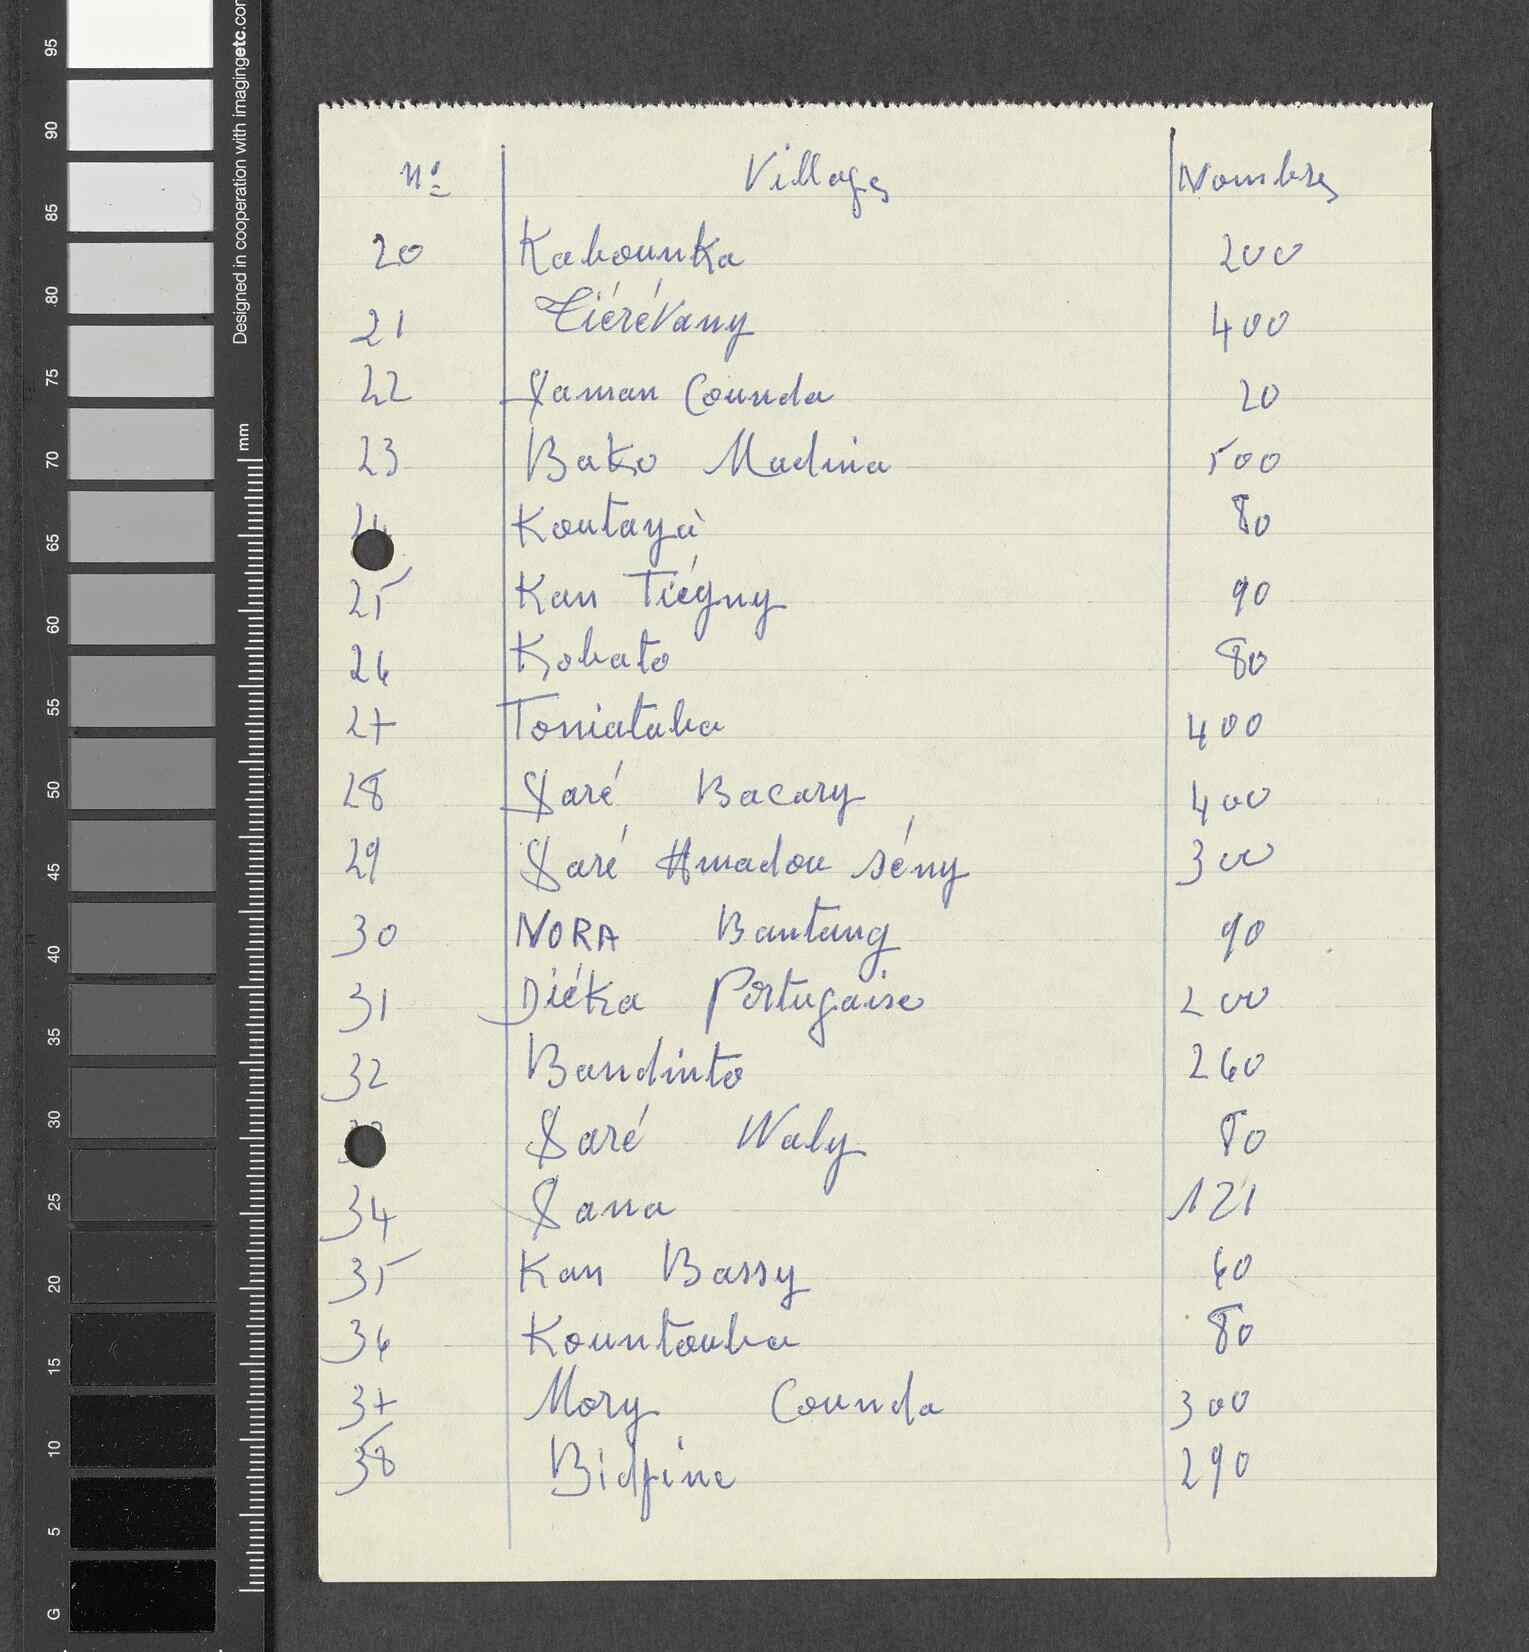 95
90
85
80
75
70
65
60
55
50
45
40
35
30
25
20
15
10
5
G
Designed in cooperation with imagingetc.com
mm
n° Villages Nombres
20 Kabounka 200
21 Tiérévany 400
22 Saman Counda 20
23 Bako Madina 500
24 Koutaya 80
25 Kan Tiégny 90
26 Kobato 80
27 Toniataba 400
28 Saré Bacary 400
29 Saré Amadou Sény 300
30 NORA Bantang 90
31 Diéka Portugaise 200
32 Bandinto 260
Saré Waly 80
34 Sana 121
35 Kan Bassy 60
36 Kountouba 80
37 Mory Counda 300
38 290